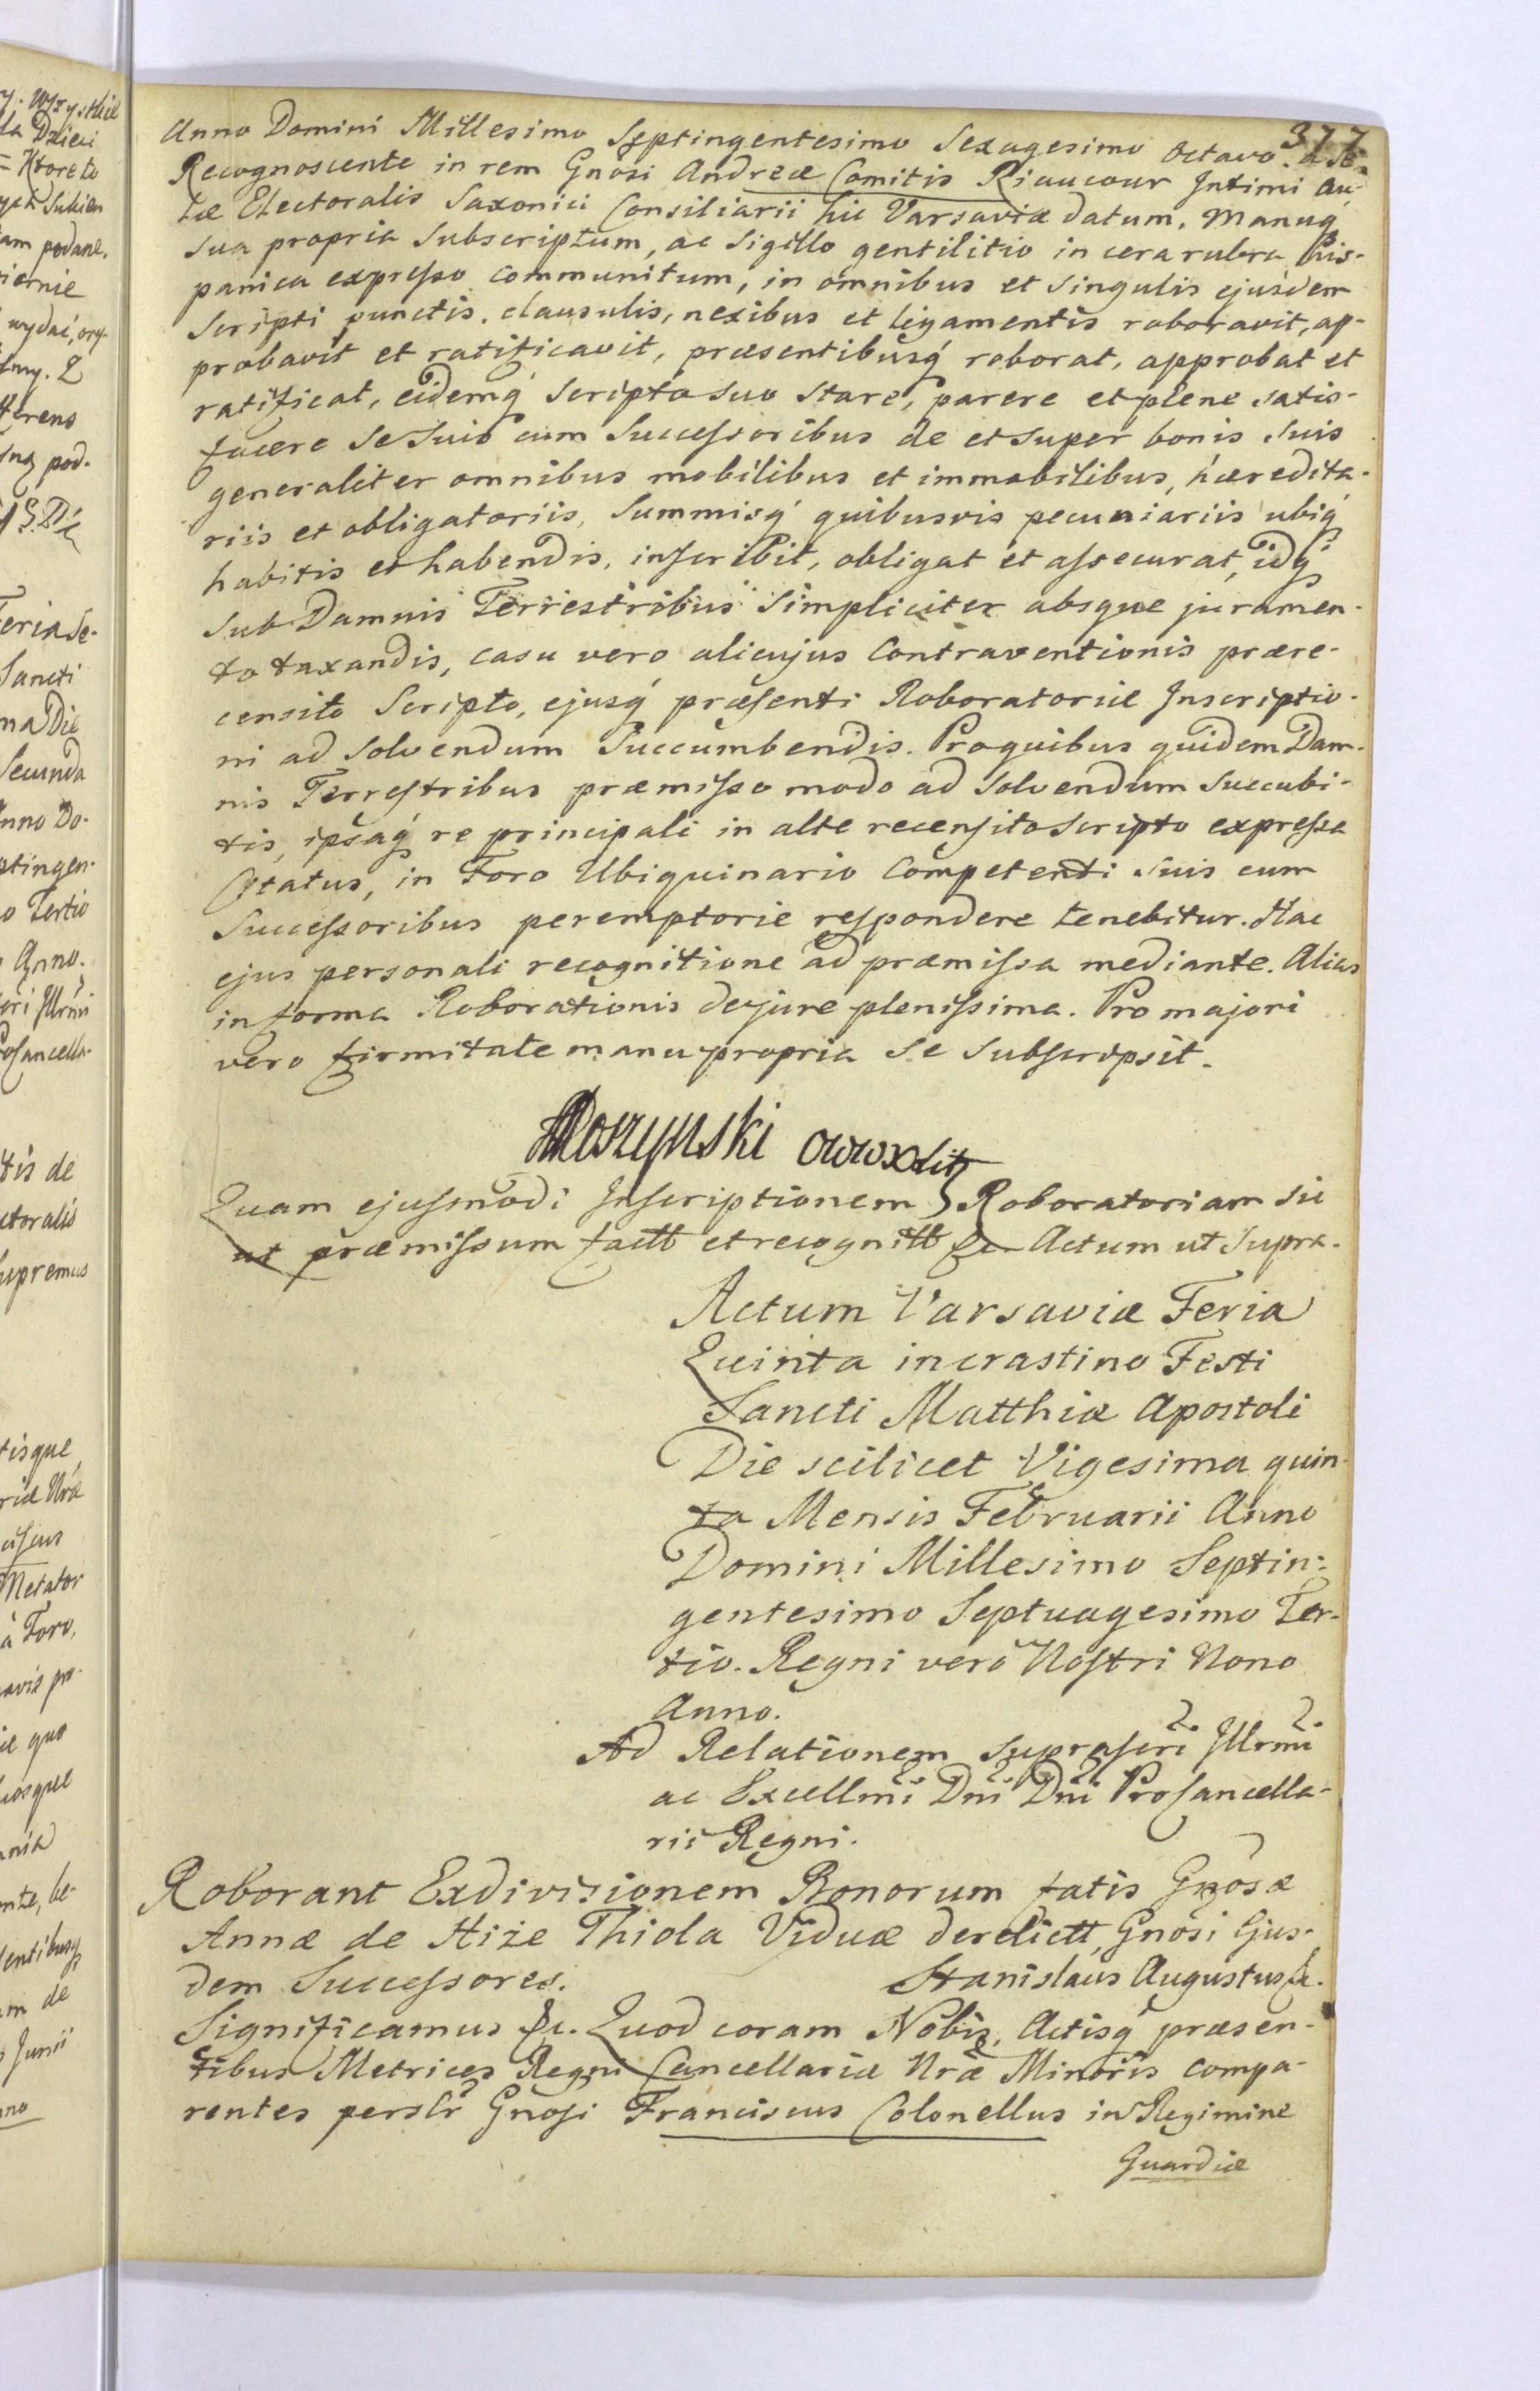 377
Anno Domini Millesimo Septingentesimo Sexagesimo Octavo. a Se
Recognoscente in rem Gnosi Andreæ Comitis Riaucour Intimi Au-
læ Electoralis Saxonici Consiliarii hic Varsaviæ datum, manuq
sua propria subscriptum, ac Sigillo gentilitio in cera rubra his-
panica expresso communitum, in omnibus et singulis ejusdem
Scripti punctis, clausulis, nexibus et ligamentis roboravit, ap-
probavit et ratificavit, præsentibusq roborat, approbat et
ratificat, eidemq Scripto suo stare, parere et plene satis-
facere se suis cum Successoribus de et super bonis suis
generaliter omnibus mobilibus et immobilibus, hæredita-
riis et obligatoriis, Summisq quibusvis pecuniariis ubiq
habitis et habendis, inscribit, obligat et assecurat, idq
sub Damnis Terrestribus simpliciter absque juramen-
to taxandis, casu vero alicujus Contraventionis prære-
censito Scripto, ejusq præsenti Roboratoriæ Inscriptio-
ni ad solvendum Succumbendis. Pro quibus quidem Dam-
nis Terrestribus præmisso modo ad solvendum succubi-
tis, ipsaq re principali in alte recensito scripto expressa
Citatus, in Foro Ubiquinario Competenti suis cum
Successoribus peremptorie respondere tenebitur. Hac
ejus personali recognitione ad præmissa mediante. Alias
in forma Roborationis de jure plenissima. Pro majori
vero firmitate manu propria se subscripsit.
Moszynski
Quam ejusmodi Inscriptionem Roboratoriam sic
ut præmissum factt et recognitt &c Actum ut Supra.
Actum Varsaviæ Feria
Quinta in crastino Festi
Sancti Matthiæ Apostoli
Die scilicet Vigesima quin-
ta Mensis Februarii Anno
Domini Millesimo Septin-
gentesimo Septuagesimo Ter-
tio. Regni vero Nostri Nono
Anno.
Ad Relationem suprascri Illrmi
ac Excellmi Dni Dni ProCancella-
rii Regni.
Roborant Exdivisionem Bonorum fatis Gnosæ
Annæ de Hiże Thiola Viduæ derelictt, Gnosi Ejus-
dem Successores. Stanislaus Augustus &c.
Significamus &c. Quod coram Nobis, Actisq præsen-
tibus Metrices Regni Cancellariæ Nræ Minoris compa-
rentes perslr Gnosi Franciscus Colonellus in Regimine
Guardiæ